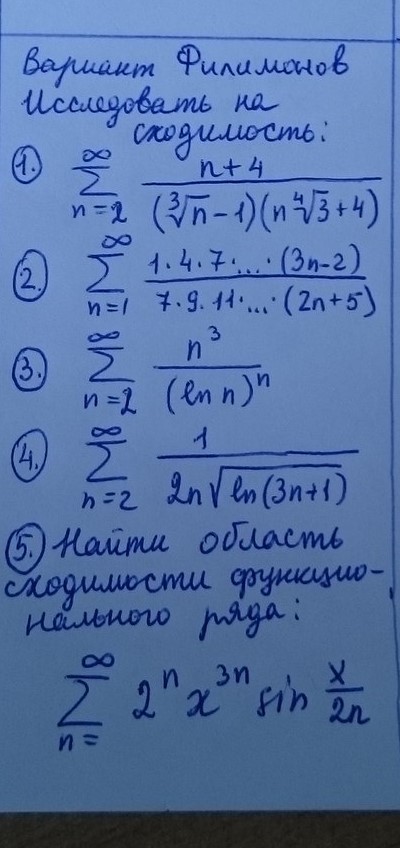 Вариант Филимонов
Исследовать на
сходимость:
1. ∞ ∑ n=2 (n+4)/((∛n-1)(n∜3+4))
2. ∞ ∑ n=1 (1·4·7·...·(3n-2))/(7·9·11·...·(2n+5))
3. ∞ ∑ n=2 n³/(ln n)ⁿ
4. ∞ ∑ n=2 1/(2n√(ln(3n+1)))
5. Найти область
сходимости функцио-
нального ряда:
∞ ∑ n= 2ⁿ x³ⁿ sin x/2n